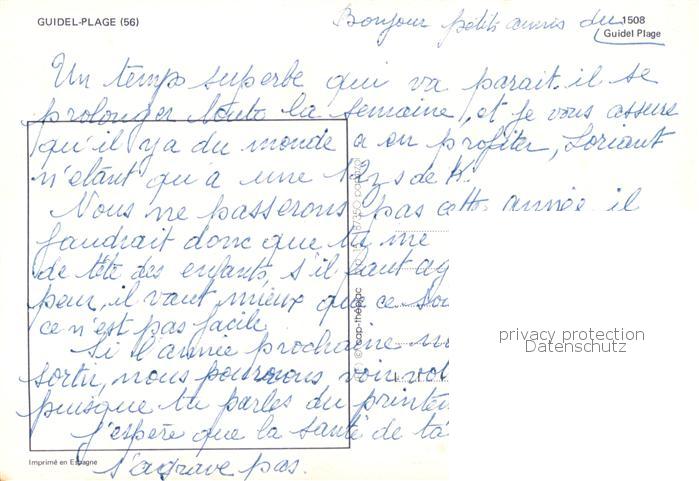 GUIDEL-PLAGE (56)
Bonjour petits amis du 1508
Guidel Plage
Un temps superbe qui va parait.il se
prolonger toute la semaine, et je vous assure
qu'il y a du monde a en profiter, Lorient
n'étant qu'a une 12 de K.
Nous ne passerons pas cette année il
faudrait donc que tu me
de tête des enfants, s'il faut ag
peur, il vaut mieux que ce soi
ce n'est pas facile
Si l'année prochaine
sortir, nous pourrons voir
puisque tu parles du printem
J'espère que la santé de ta
s'agrave pas.
privacy protection
Datenschutz
Imprimé en Espagne